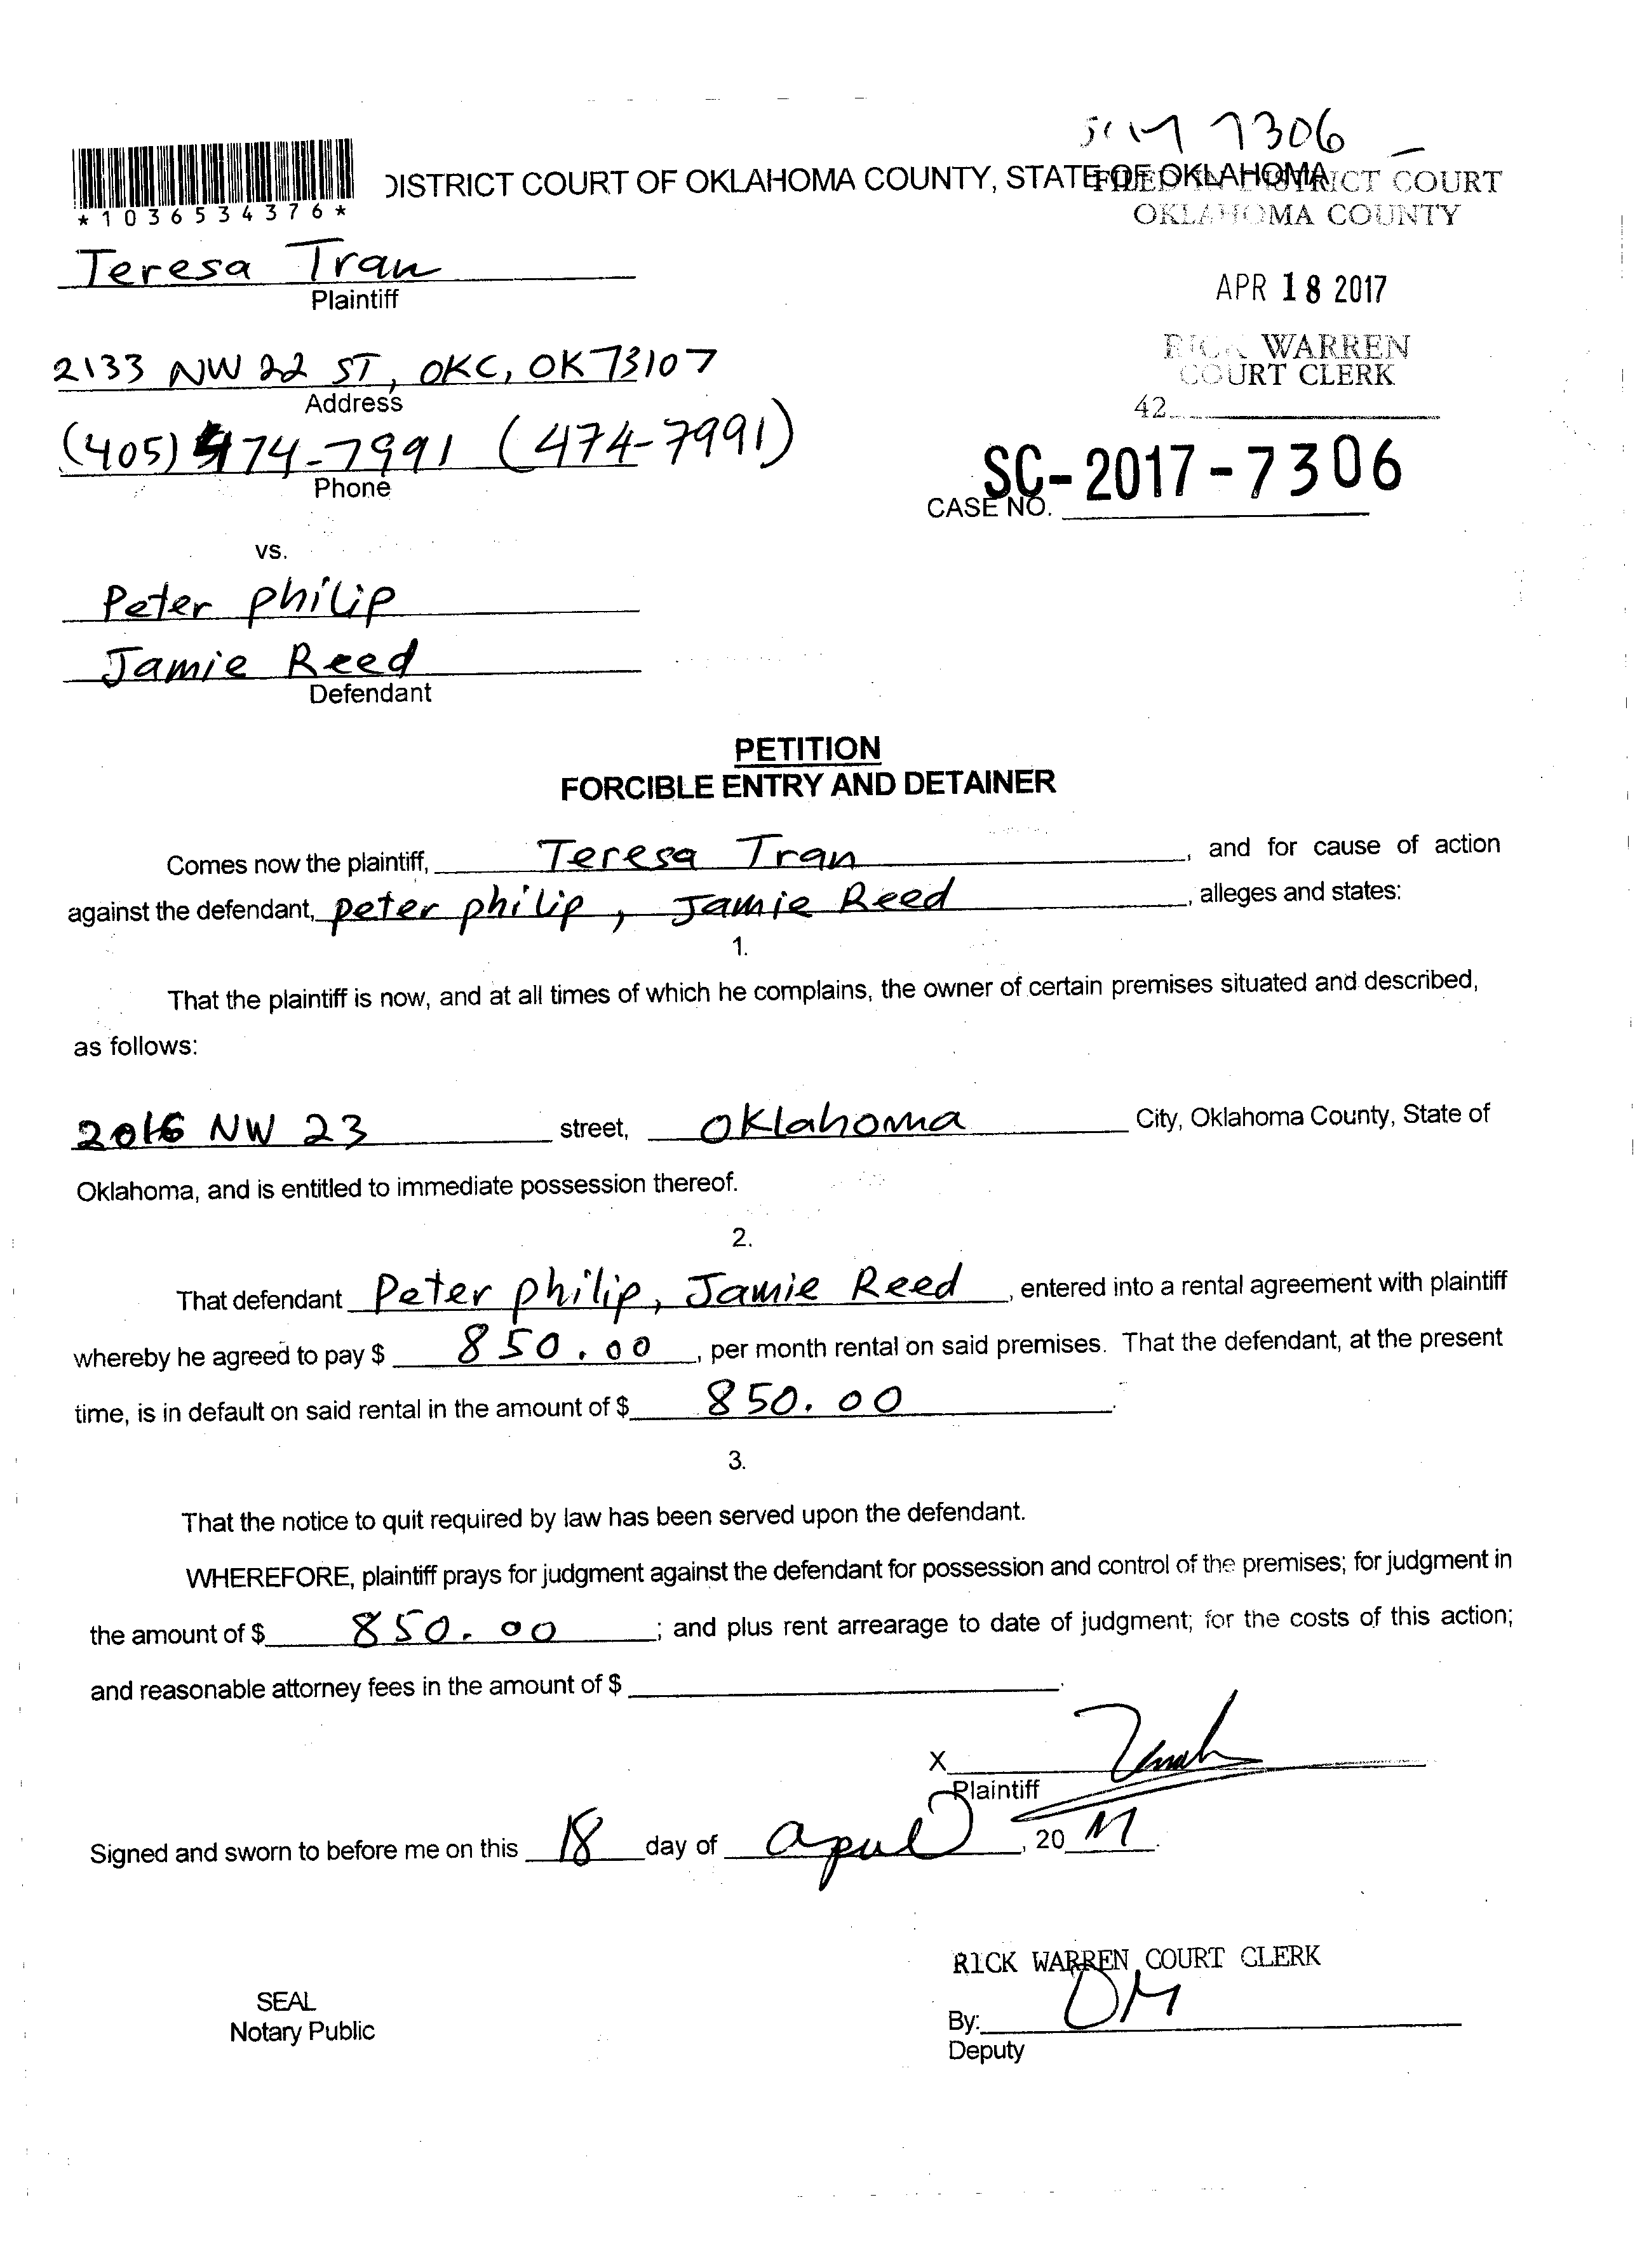 7306
DISTRICT COURT OF OKLAHOMA COUNTY, STATE OF OKLAHOMA
FILED IN DISTRICT COURT
OKLAHOMA COUNTY
*1036534376*
Teresa Tran
Plaintiff
APR 18 2017
RICK WARREN
COURT CLERK
2133 NW 22 ST, OKC, OK 73107
Address
42
(405) 474-7991 (474-7991)
Phone
SC-2017-7306
CASE NO.
vs.
Peter philip
Jamie Reed
Defendant
PETITION
FORCIBLE ENTRY AND DETAINER
Comes now the plaintiff, Teresa Tran, and for cause of action
against the defendant, peter philip, Jamie Reed, alleges and states:
1.
That the plaintiff is now, and at all times of which he complains, the owner of certain premises situated and described,
as follows:
2016 NW 23 street, Oklahoma City, Oklahoma County, State of
Oklahoma, and is entitled to immediate possession thereof.
2.
That defendant Peter philip, Jamie Reed, entered into a rental agreement with plaintiff
whereby he agreed to pay $ 850.00, per month rental on said premises. That the defendant, at the present
time, is in default on said rental in the amount of $ 850.00.
3.
That the notice to quit required by law has been served upon the defendant.
WHEREFORE, plaintiff prays for judgment against the defendant for possession and control of the premises; for judgment in
the amount of $ 850.00; and plus rent arrearage to date of judgment; for the costs of this action;
and reasonable attorney fees in the amount of $
X
Plaintiff
Signed and sworn to before me on this 18 day of april, 2017.
RICK WARREN COURT CLERK
SEAL
Notary Public
By: DM
Deputy